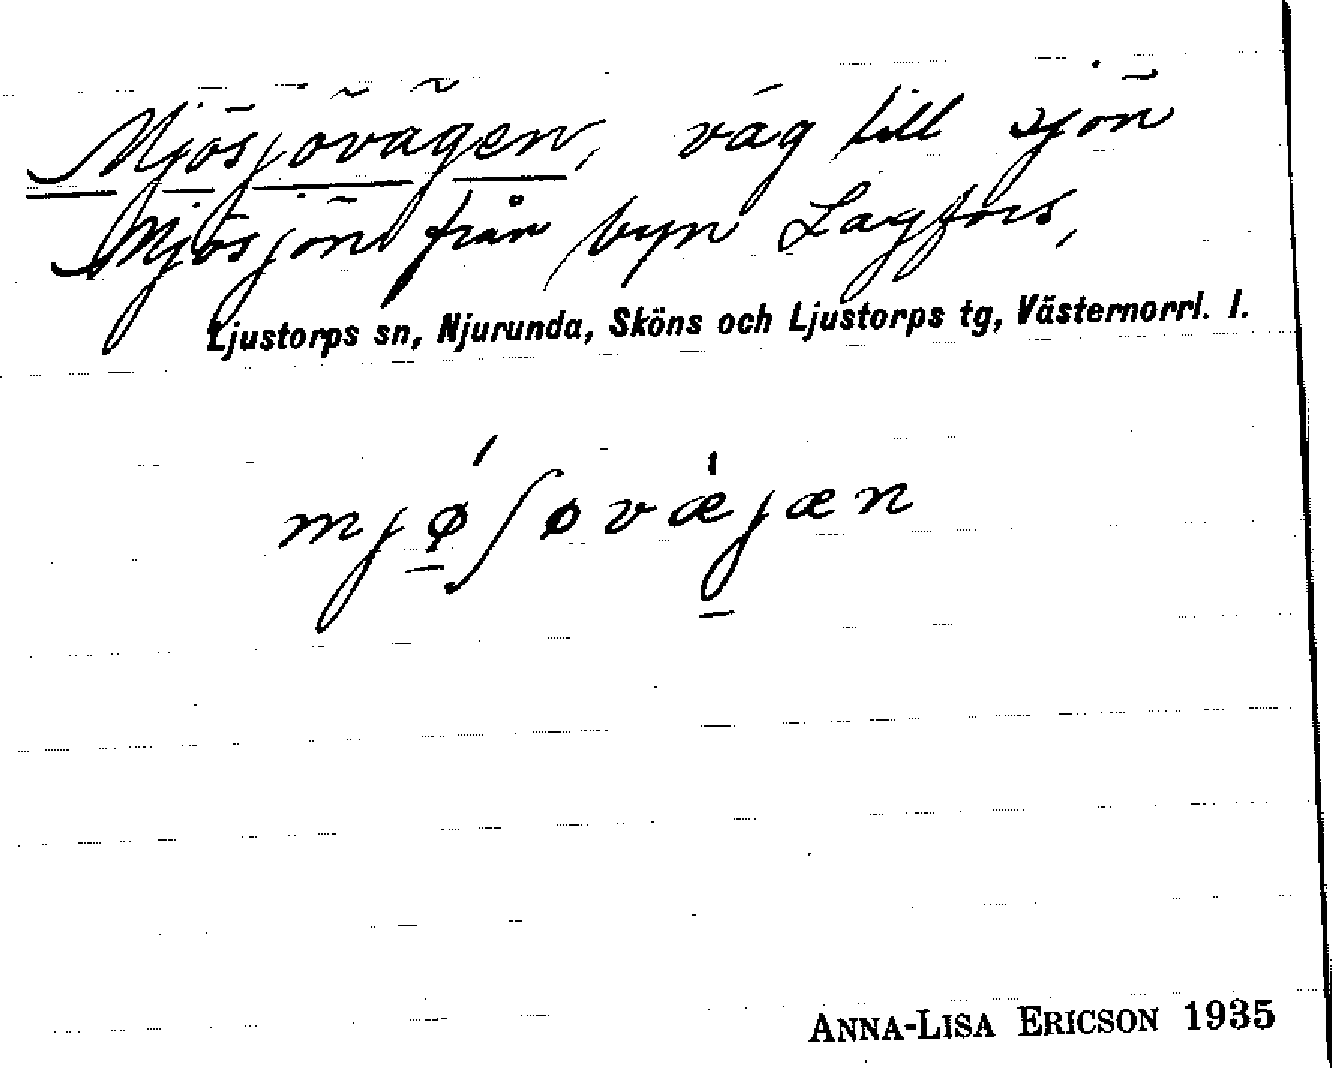 Mjösjövägen, väg till sjön
Mjösjön från byn Lagfors,
Ljustorps sn, Njurunda, Sköns och Ljustorps tg, Västernorrl. l.
mjǿ̱ʃøvæ̍j̱æn
ANNA-LISA ERICSON 1935